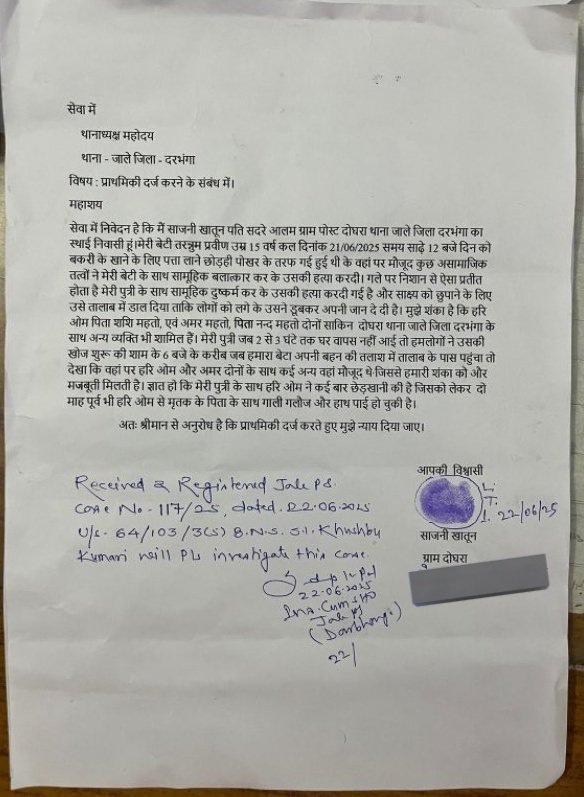 सेवा में
थानाध्यक्ष महोदय
थाना - जाले जिला - दरभंगा
विषय : प्राथमिकी दर्ज करने के संबंध में।
महाशय
सेवा में निवेदन है कि मैं साजनी खातून पति सदरे आलम ग्राम पोस्ट दोघरा थाना जाले जिला दरभंगा का
स्थाई निवासी हूं।मेरी बेटी तरन्नुम प्रवीण उम्र 15 वर्ष कल दिनांक 21/06/2025 समय साढ़े 12 बजे दिन को
बकरी के खाने के लिए पत्ता लाने छोड़ही पोखर के तरफ गई हुई थी के वहां पर मौजूद कुछ असामाजिक
तत्वों ने मेरी बेटी के साथ सामूहिक बलात्कार कर के उसकी हत्या करदी। गले पर निशान से ऐसा प्रतीत
होता है मेरी पुत्री के साथ सामूहिक दुष्कर्म कर के उसकी हत्या करदी गई है और साक्ष्य को छुपाने के लिए
उसे तालाब में डाल दिया ताकि लोगों को लगे के उसने डूबकर अपनी जान दे दी है। मुझे शंका है कि हरि
ओम पिता शशि महतो, एवं अमर महतो, पिता नन्द महतो दोनों साकिन दोघरा थाना जाले जिला दरभंगा के
साथ अन्य व्यक्ति भी शामिल हैं। मेरी पुत्री जब 2 से 3 घंटे तक घर वापस नहीं आई तो हमलोगों ने उसकी
खोज शुरू की शाम के 6 बजे के करीब जब हमारा बेटा अपनी बहन की तलाश में तालाब के पास पहुंचा तो
देखा कि वहां पर हरि ओम और अमर दोनों के साथ कई अन्य वहां मौजूद थे जिससे हमारी शंका को और
मजबूती मिलती है। ज्ञात हो कि मेरी पुत्री के साथ हरि ओम ने कई बार छेड़खानी की है जिसको लेकर दो
माह पूर्व भी हरि ओम से मृतक के पिता के साथ गाली गलौज और हाथ पाई हो चुकी है।
अतः श्रीमान से अनुरोध है कि प्राथमिकी दर्ज करते हुए मुझे न्याय दिया जाए।
आपकी विश्वासी
L.
T.
I. 22/06/25
साजनी खातून
ग्राम दोघरा
Received & Registered Jale PS.
Case No. - 117/25, dated. 22.06.2025
U/s - 64/103/3(5) B.N.S. S.I. Khushbu
Kumari will Pls investigate this case.
22.06.2025
Jale PS
(Darbhanga)
22/